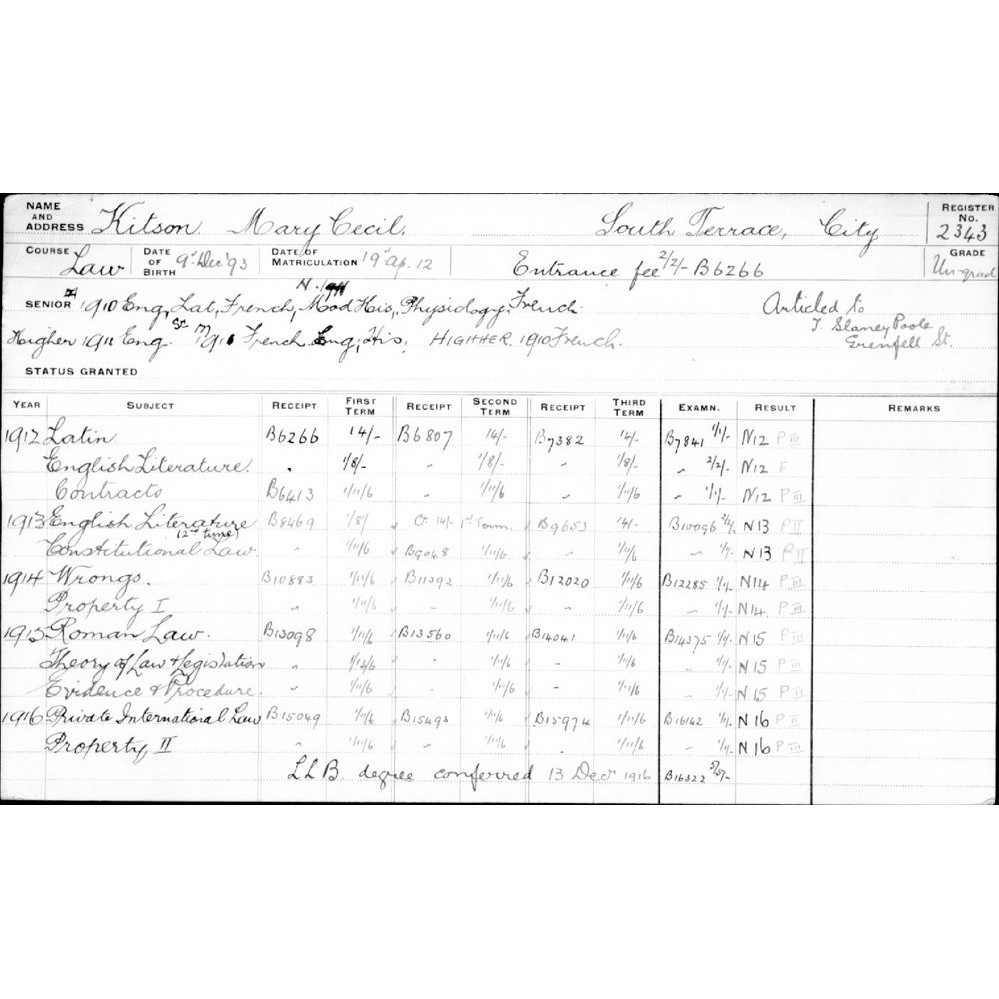 NAME AND ADDRESS Kitson Mary Cecil. South Terrace, City REGISTER No. 2343
COURSE Law DATE OF BIRTH 9 Dec '93 DATE OF MATRICULATION 19 Ap. 12 Entrance fee 2/2/- B6266 GRADE Un-grad
SENIOR 1910 Eng, Lat, French, Mod His, Physiology, French Articled to
T. Slaney Poole
Higher 1911 Eng. French Eng, His, HIGHER 1910 French. Grenfell St.
STATUS GRANTED
YEAR SUBJECT RECEIPT FIRST TERM RECEIPT SECOND TERM RECEIPT THIRD TERM EXAMN. RESULT REMARKS
1912 Latin B6266 14/- B6807 14/- B7382 14/- B7841 1/1/- N12 P III
English Literature. " 1/8/- " 1/8/- " 1/8/- " 2/2/- N12 F
Contracts B6413 1/11/6 " 1/11/6 " 1/11/6 " 1/1/- N12 P III
1913 English Literature (2nd time) B8469 1/8/ Cr 14/- 1st Term. B9653 14/- B10096 2/2/- N13 P II
Constitutional Law. " 1/11/6 B9048 1/11/6 " 1/11/6 " 1/1/- N13 P II
1914 Wrongs. B10883 1/11/6 B11392 1/11/6 B12020 1/11/6 B12285 1/1/- N14 P III
Property I " 1/11/6 " 1/11/6 " 1/11/6 " 1/1/- N14. P III
1915 Roman Law. B13098 1/11/6 B13560 1/11/6 B14041 1/11/6 B14375 1/1/- N15 P III
Theory of Law & Legislation " 1/11/6 " 1/11/6 " 1/11/6 " 1/1/- N15 P III
Evidence & Procedure. " 1/11/6 " 1/11/6 " 1/11/6 " 1/1/- N15 P II
1916 Private International Law B15049 1/11/6 B15493 1/11/6 B15974 1/11/6 B16142 1/1/- N16 P II
Property II " 1/11/6 " 1/11/6 " 1/11/6 " 1/1/- N16 P III
LLB degree conferred 13 Decr 1916 B16322 5/5/-